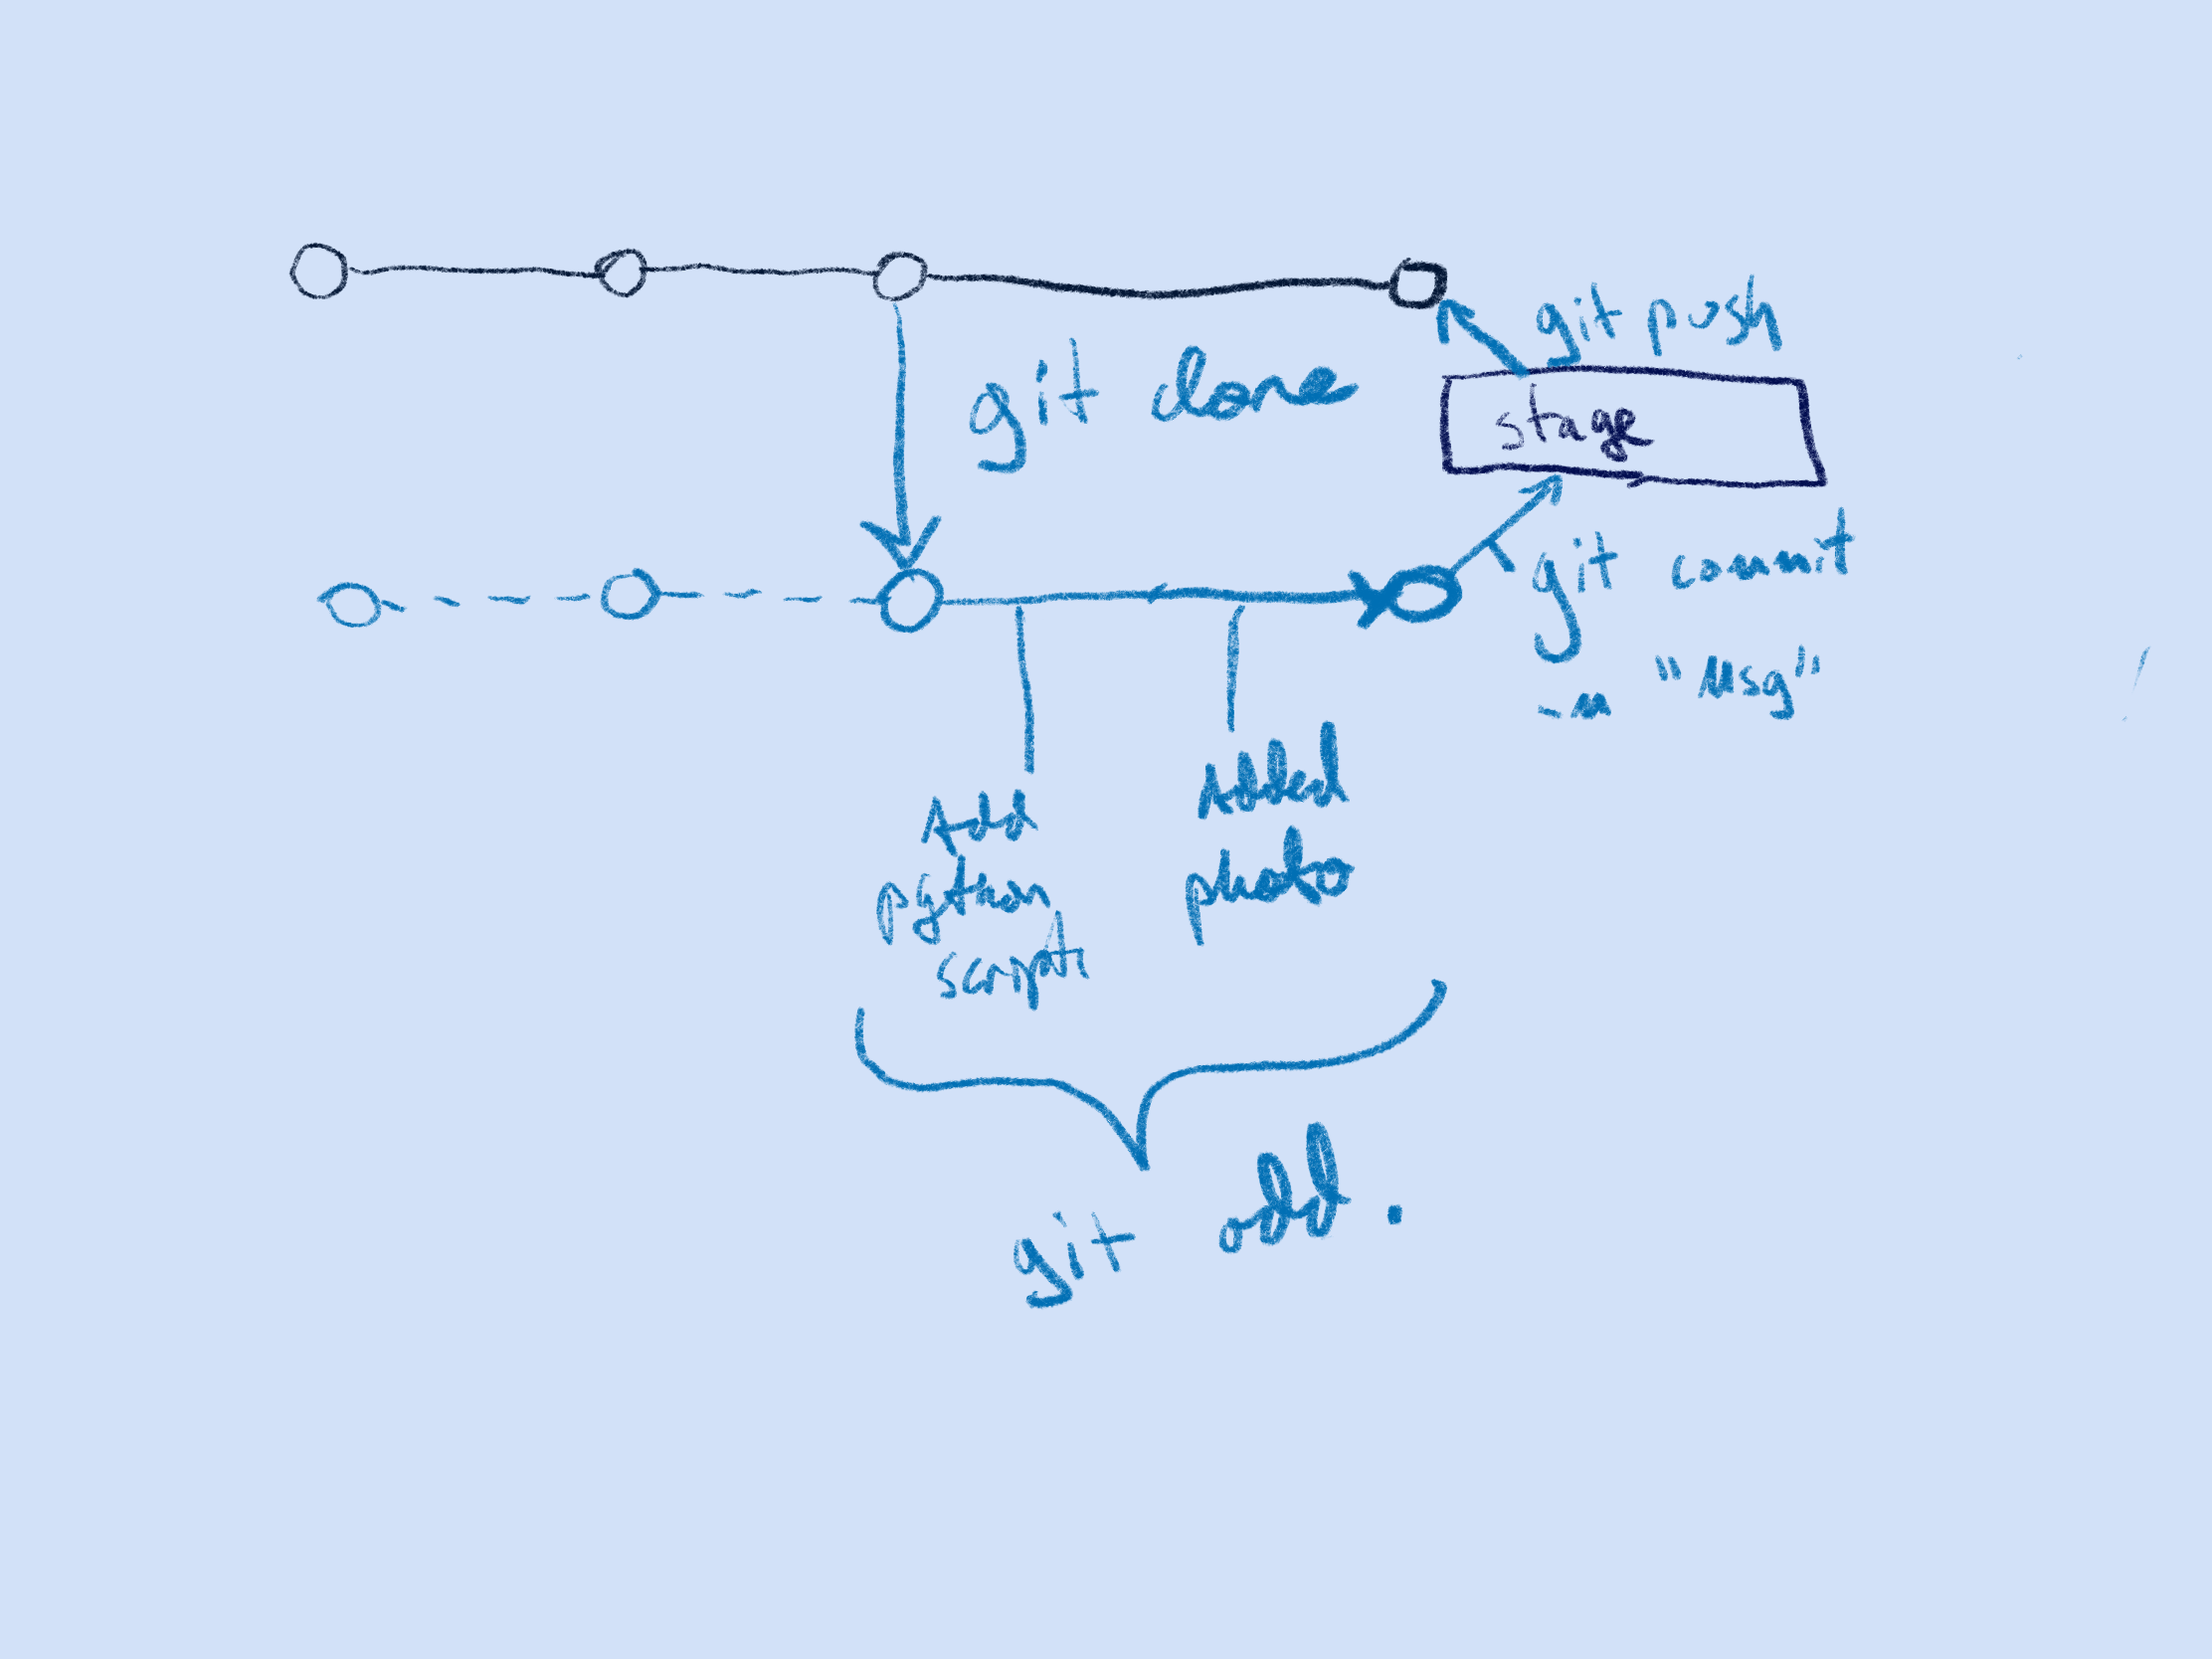 git push
git clone
stage
git commit
-m "Msg"
Add
python
script
Added
photo
git add .